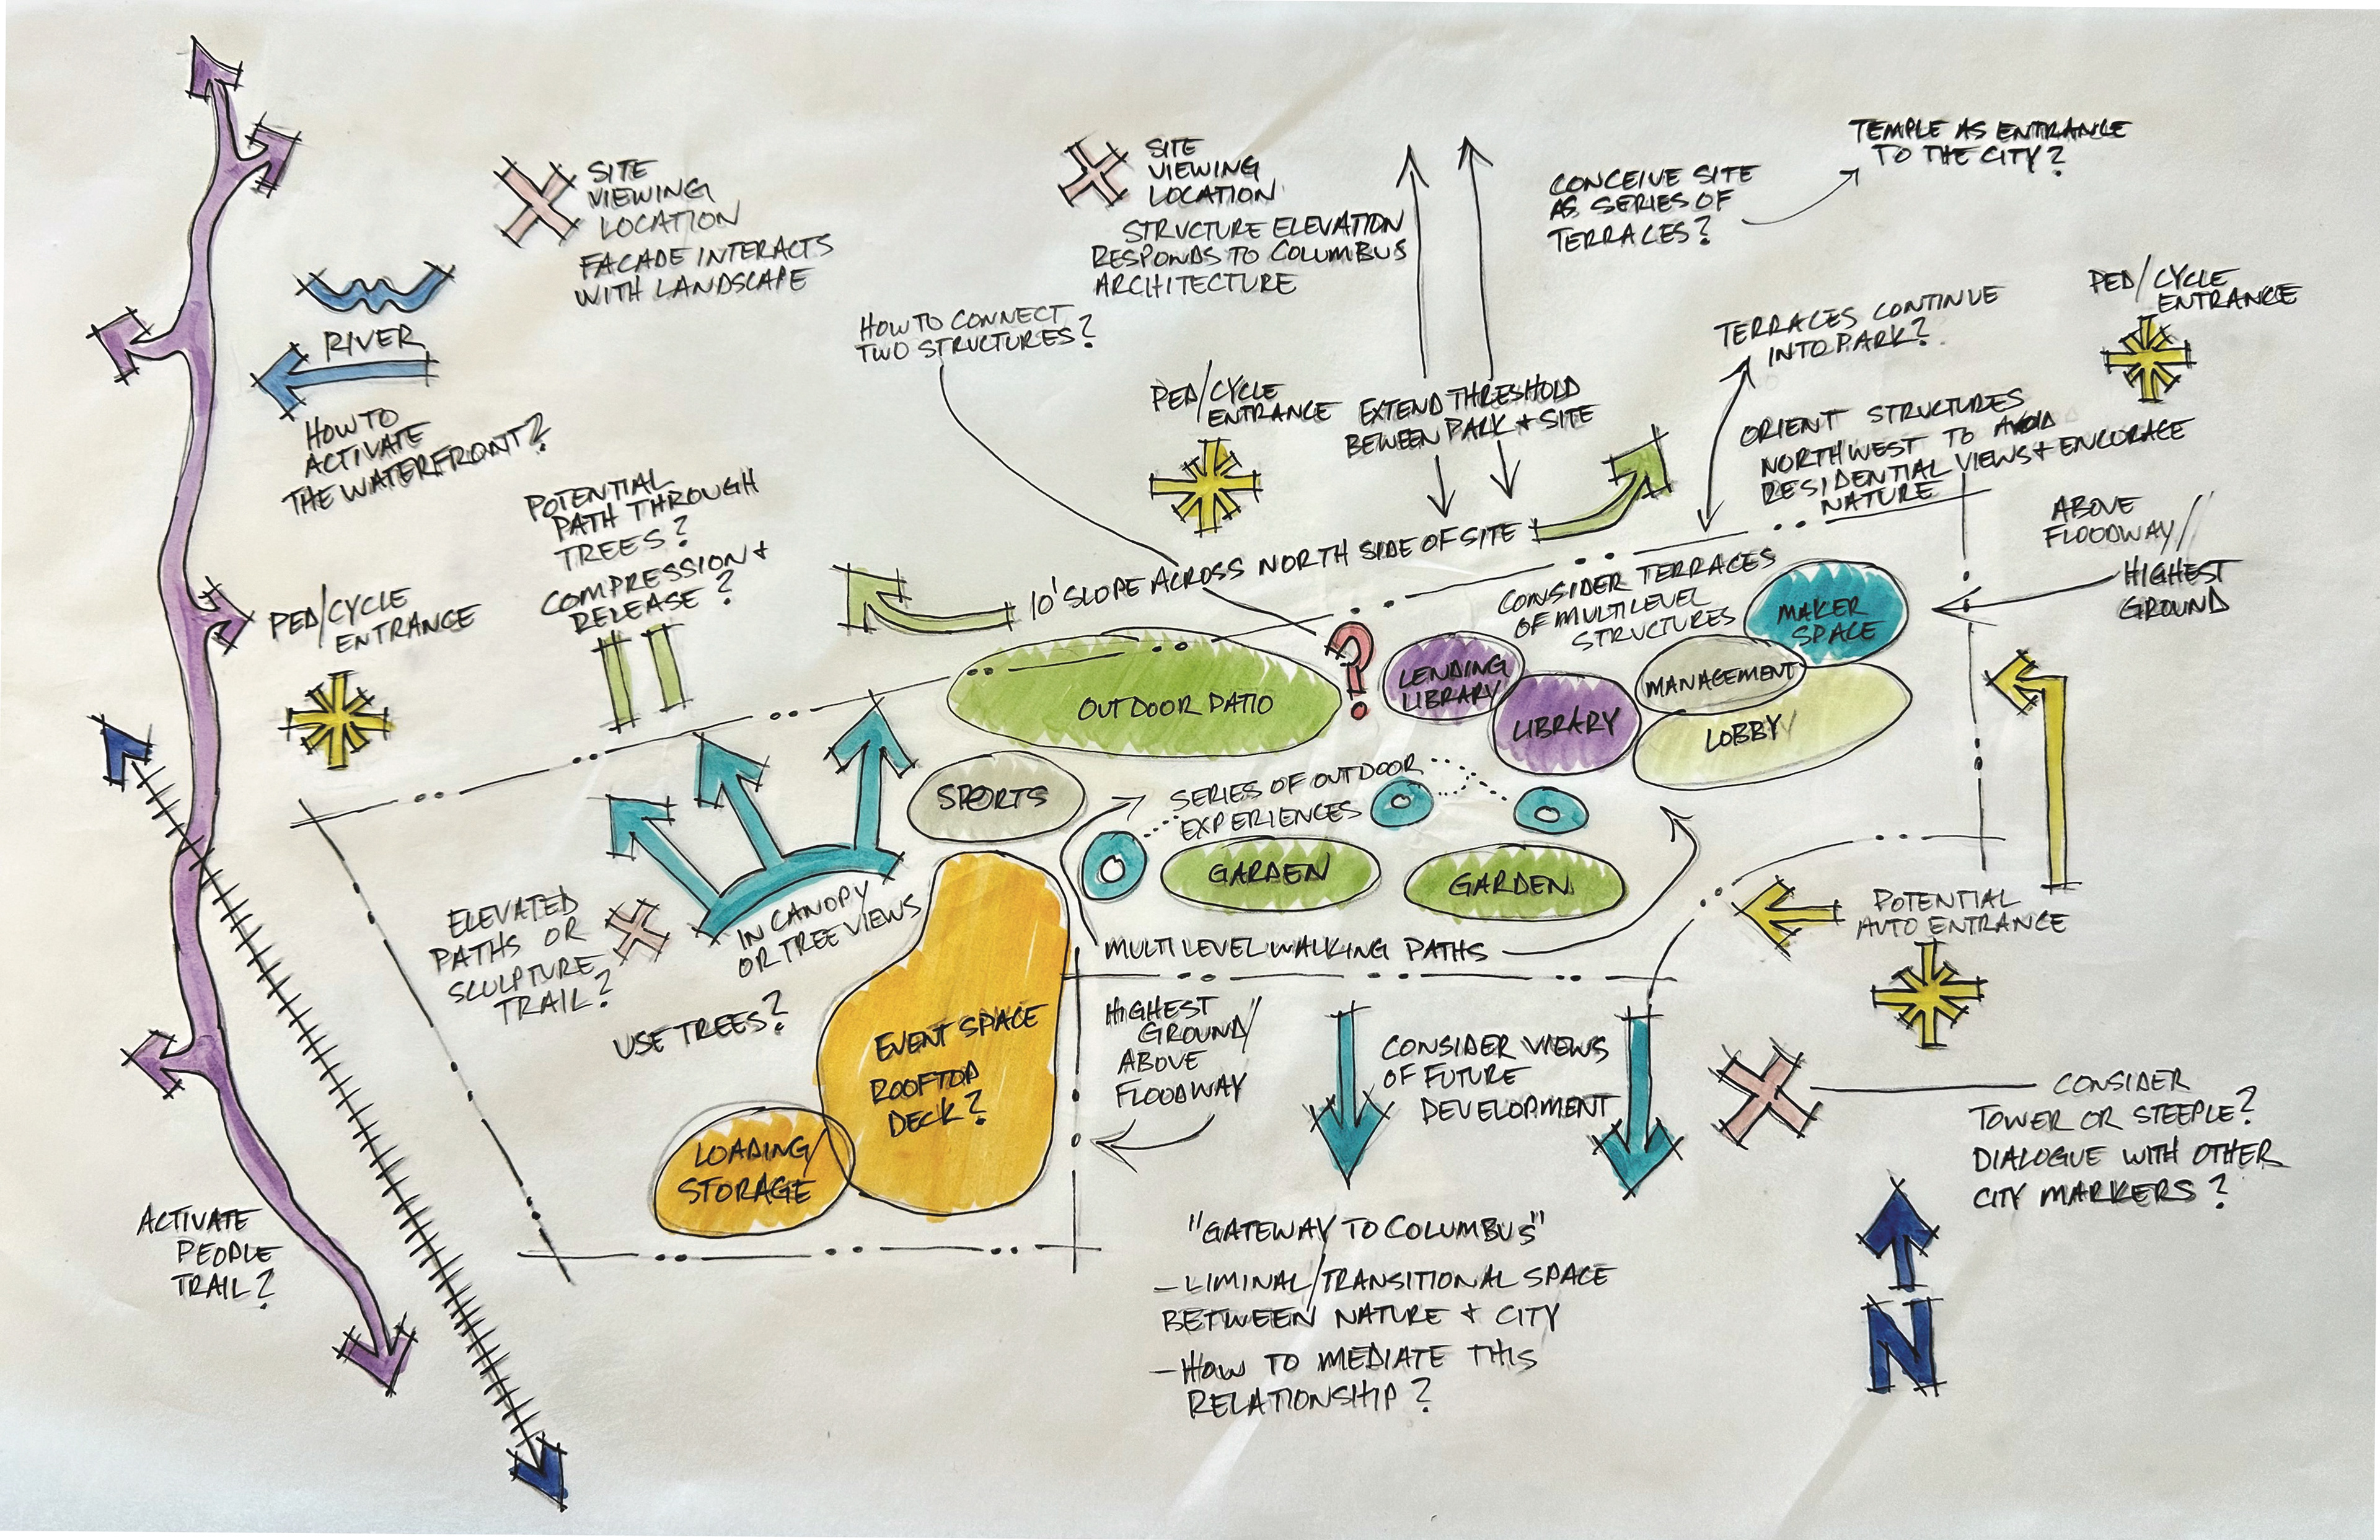 SITE
VIEWING
LOCATION
FACADE INTERACTS
WITH LANDSCAPE
SITE
VIEWING
LOCATION
STRUCTURE ELEVATION
RESPONDS TO COLUMBUS
ARCHITECTURE
CONCEIVE SITE
AS SERIES OF
TERRACES?
TEMPLE AS ENTRANCE
TO THE CITY?
RIVER
HOW TO
ACTIVATE
THE WATERFRONT?
HOW TO CONNECT
TWO STRUCTURES?
PED/CYCLE
ENTRANCE
EXTEND THRESHOLD
BEWEEN PARK + SITE
TERRACES CONTINUE
INTO PARK?
PED/CYCLE
ENTRANCE
ORIENT STRUCTURES
NORTHWEST TO AVOID
RESIDENTIAL VIEWS + ENCORAGE
NATURE
ABOVE
FLOODWAY/
HIGHEST
GROUND
POTENTIAL
PATH THROUGH
TREES?
COMPRESSION +
RELEASE?
PED/CYCLE
ENTRANCE
10' SLOPE ACROSS NORTH SIDE OF SITE
CONSIDER TERRACES
OF MULTILEVEL
STRUCTURES
MAKER
SPACE
OUTDOOR PATIO
?
LENDING
LIBRARY
LIBRARY
MANAGEMENT
LOBBY
SPORTS
SERIES OF OUTDOOR
EXPERIENCES
GARDEN
GARDEN
MULTILEVEL WALKING PATHS
POTENTIAL
AUTO ENTRANCE
ELEVATED
PATHS OR
SCULPTURE
TRAIL?
IN CANOPY
OR TREE VIEWS
USE TREES?
EVENT SPACE
ROOFTOP
DECK?
LOADING/
STORAGE
HIGHEST
GROUND/
ABOVE
FLOODWAY
CONSIDER VIEWS
OF FUTURE
DEVELOPMENT
CONSIDER
TOWER OR STEEPLE?
DIALOGUE WITH OTHER
CITY MARKERS?
ACTIVATE
PEOPLE
TRAIL?
"GATEWAY TO COLUMBUS"
- LIMINAL/TRANSITIONAL SPACE
BETWEEN NATURE + CITY
- HOW TO MEDIATE THIS
RELATIONSHIP?
N